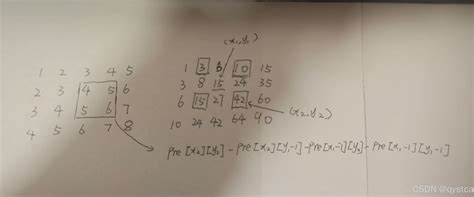 (x₁,y₁)
1 2 3 4 5
2 3 4 5 6
3 4 5 6 7
4 5 6 7 8
1 3 6 10 15
3 8 15 24 35
6 15 27 42 60
10 24 42 64 90
(x₂,y₂)
pre[x₂][y₂]-pre[x₂][y₁-1]-pre[x₁-1][y₂]-pre[x₁-1][y₁-1]
CSDN @qystca